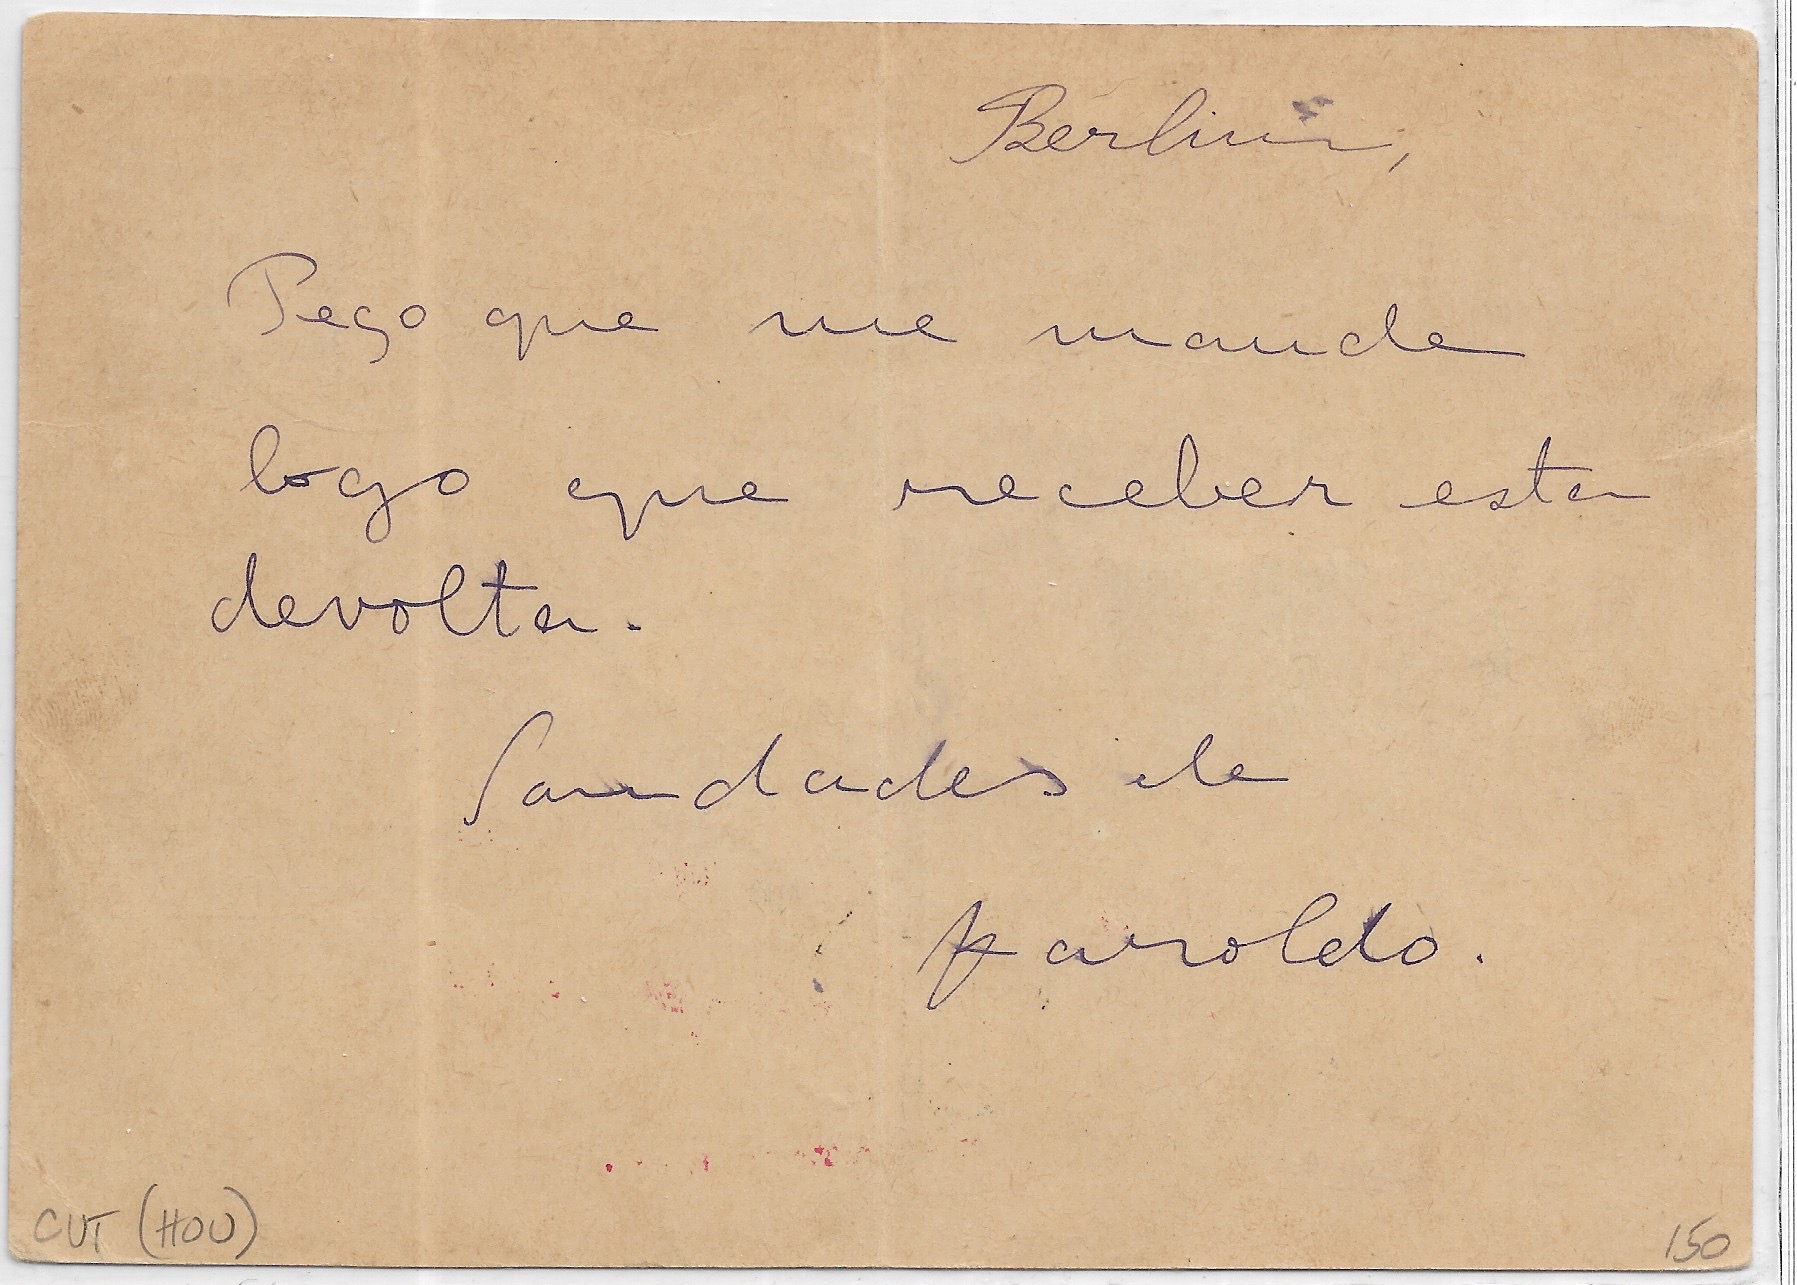 Berlim,
Peço que me mande
logo que receber esta
devolta.
Saudades de
Haroldo.
CUT (HOU)
150